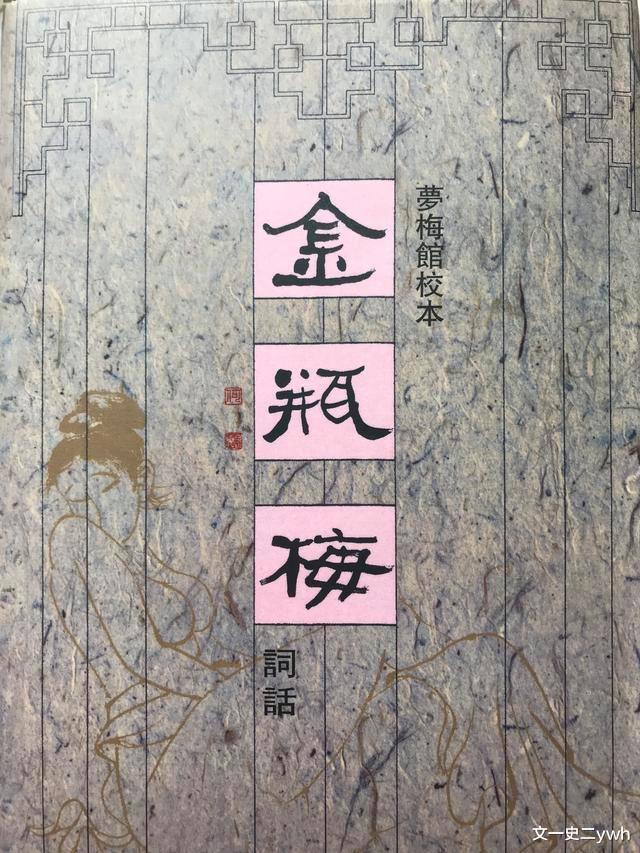 夢梅館校本
金瓶梅
詞話
文一史二ywh